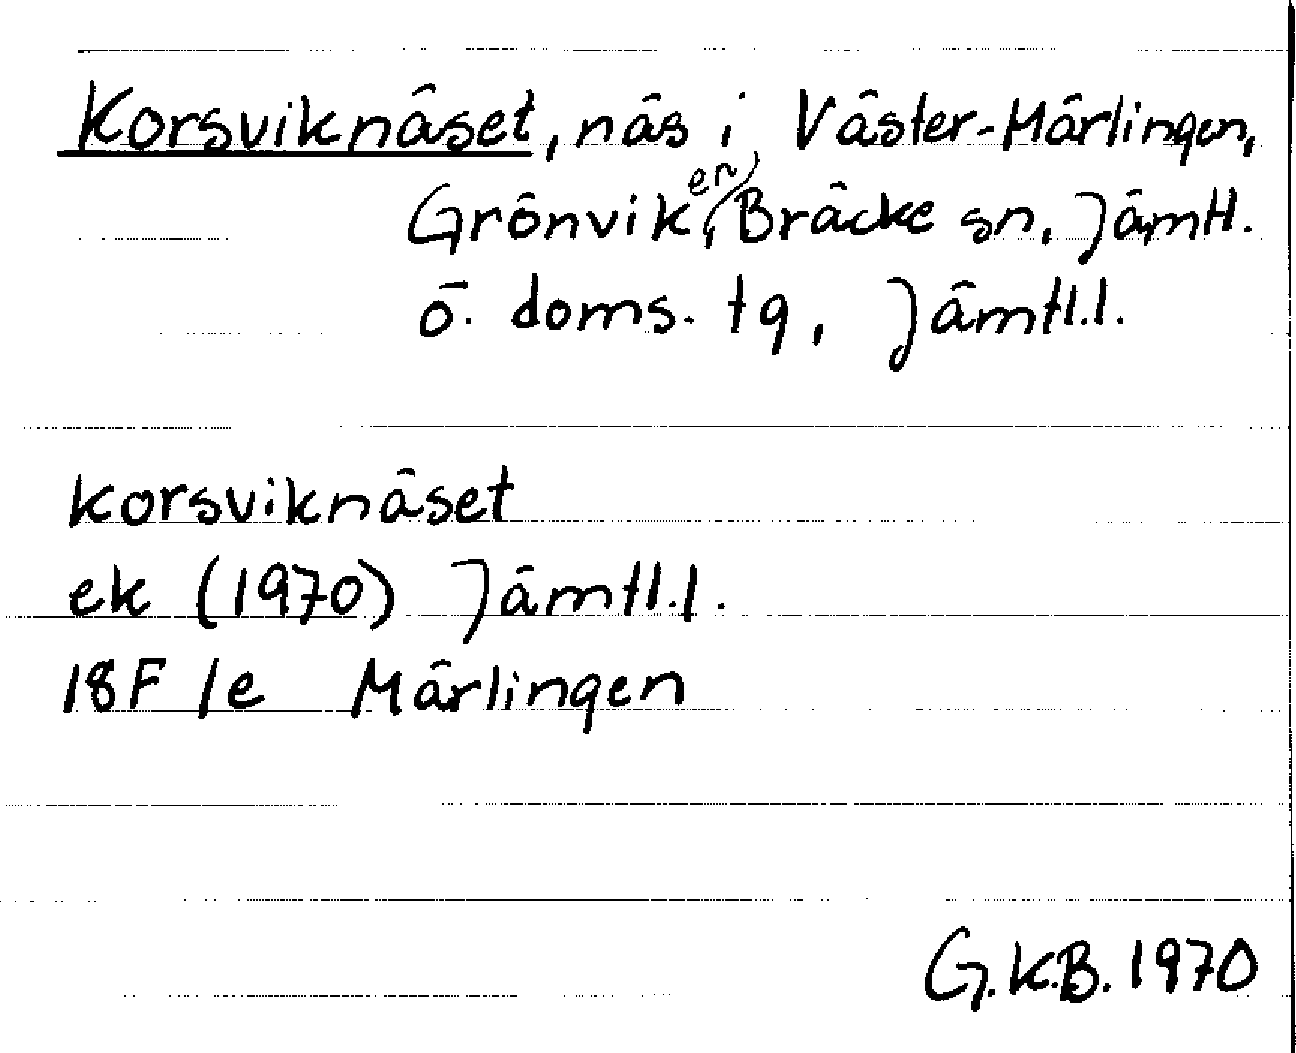 Korsviknäset, näs i Väster-Märlingen,
Grönviken, Bräcke sn, Jämtl.
ö. doms. tg, Jämtl.l.
Korsviknäset
ek (1970) Jämtl.l.
18F 1e Märlingen
G.K.B. 1970